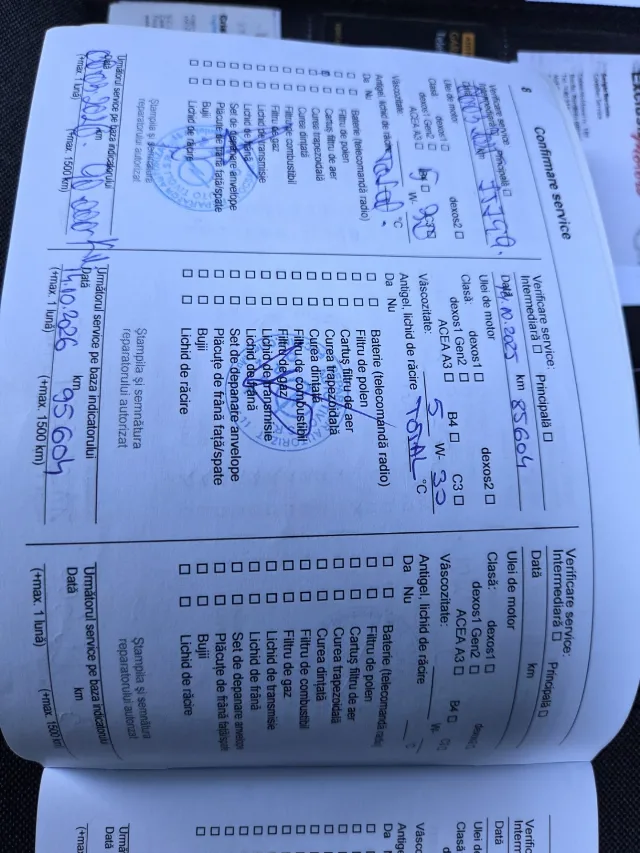 8
Confirmare service
Verificare service
Principală □
Ulei de motor
dexos1 □ dexos2 □
Clasă:
dexos1 Gen2 □
ACEA A3 □
Vâscozitate: 5 W- 30
Antigel, lichid de răcire Total °C
Da Nu
□ □ Baterie (telecomandă radio)
□ □ Filtru de polen
□ □ Cartuș filtru de aer
□ □ Curea trapezoidală
□ □ Curea dințată
□ □ Filtru de combustibil
□ □ Filtru de gaz
□ □ Lichid de transmisie
□ □ Lichid de frână
□ □ Set de depanare anvelope
□ □ Plăcuțe de frână față/spate
□ □ Bujii
□ □ Lichid de răcire
Ștampila și semnătura
reparatorului autorizat
Următorul service pe baza indicatorului
Data km
(+max. 1 lună) (+max. 1500 km)
Verificare service:
Intermediară □ Principală □
Dată 14.10.2025 km 85604
Ulei de motor
Clasă: dexos1 □ dexos2 □
dexos1 Gen2 □
ACEA A3 □ B4 □ C3 □
Vâscozitate: 5 W- 30
Antigel, lichid de răcire TOTAL °C
Da Nu
□ □ Baterie (telecomandă radio)
□ □ Filtru de polen
□ □ Cartuș filtru de aer
□ □ Curea trapezoidală
□ □ Curea dințată
□ □ Filtru de combustibil
□ □ Filtru de gaz
□ □ Lichid de transmisie
□ □ Lichid de frână
□ □ Set de depanare anvelope
□ □ Plăcuțe de frână față/spate
□ □ Bujii
□ □ Lichid de răcire
Ștampila și semnătura
reparatorului autorizat
Următorul service pe baza indicatorului
Dată 14.10.2026 km 95604
(+max. 1 lună) (+max. 1500 km)
Verificare service:
Intermediară □ Principală □
Dată km
Ulei de motor
Clasă: dexos1 □
dexos1 Gen2 □
ACEA A3 □ B4 □
Vâscozitate: W-
Antigel, lichid de răcire °C
Da Nu
□ □ Baterie (telecomandă radio)
□ □ Filtru de polen
□ □ Cartuș filtru de aer
□ □ Curea trapezoidală
□ □ Curea dințată
□ □ Filtru de combustibil
□ □ Filtru de gaz
□ □ Lichid de transmisie
□ □ Lichid de frână
□ □ Set de depanare anvelope
□ □ Plăcuțe de frână față/spate
□ □ Bujii
□ □ Lichid de răcire
Ștampila și semnătura
reparatorului autorizat
Următorul service pe baza indicatorului
Dată km
(+max. 1 lună) (+max. 1500 km